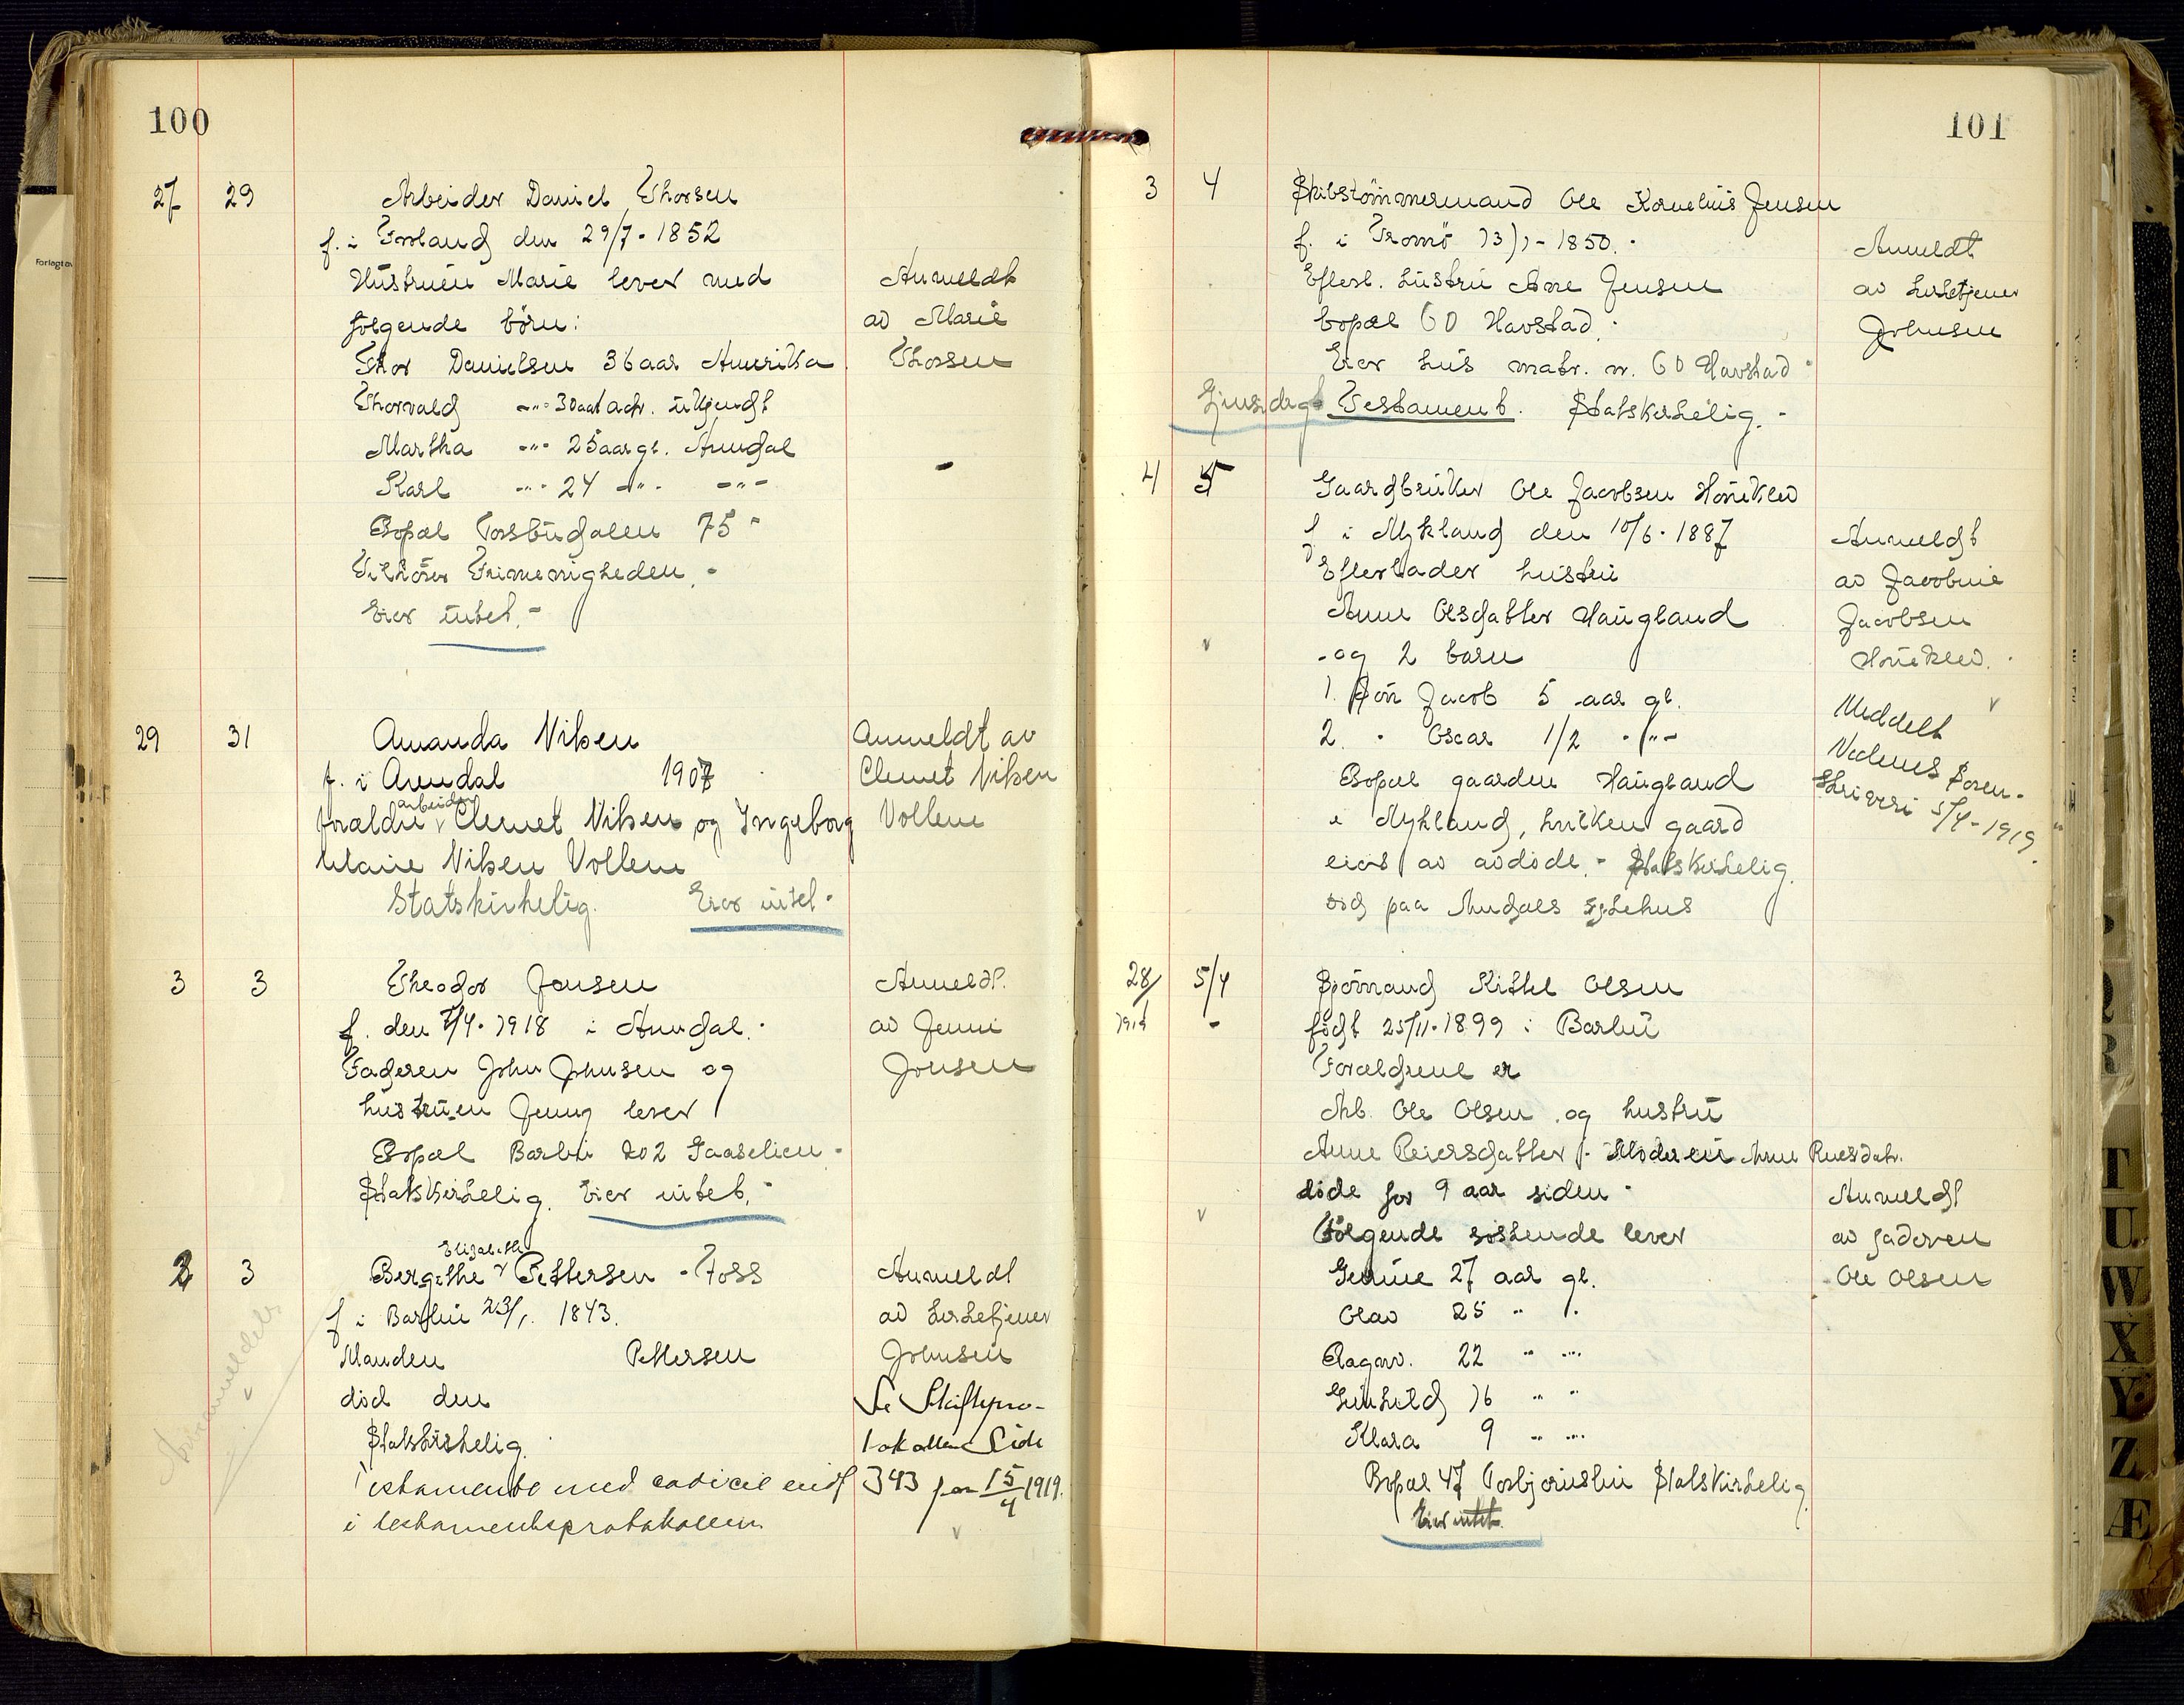 100
27 29 Arbeider Daniel Thorsen
f. i Froland den 29/7 - 1852
Hustruen Marie lever med Anmeldt
følgende børn: av Marie
Thor Danielsen 36 aar Amerika Thorsen
Thorvald -"- 30 aar adr. ukjendt
Martha -"- 25 aar gl. Arendal
Karl -"- 24 -"- -"-
Bopæl Torsbudalen 75 -
Tilhører Frimenigheden. -
Eier intet. -
29 31 Amanda Nilsen Anmeldt av
f. i Arendal 1907 Clemet Nilsen
arbeider
forældre Clemet Nilsen og Ingeborg Vollene
Marie Nilsen Vollene
Statskirkelig. Eier intet -
3 3 Theodor Jensen Anmeldt
f. den /4 - 1918 i Arendal. av Jenni
Faderen John Johnsen og Jensen
hustruen Jenny lever
Bopæl Barbu 202 Gaaselien -
Statskirkelig. Eier intet. -
Elisabeth
2 3 Bergithe Pettersen - Foss Anmeldt
f i Barbu 23/1. 1843. av kirketjener
Manden Pettersen Johnsen
død den Se Skiftepro-
Statskirkelig. tokollen Side
Testamente med codicil indf 343 par 15/4 1919.
i testamentsprotokollen
101
3 4 Skibstømmermand Ole Kornelius Jensen
f. i Tromø 13/1 - 1850. - Anmeldt
Efterl. hustru Ane Jensen av kirketjener
bopæl 60 Havstad. Johnsen
Eier hus matr. nr. 60 Havstad -
Gjensidigt Testament. Statskirkelig. -
4 5 Gaardbruker Ole Jacobsen Hønekled
f i Mykland den 10/6 - 1887 Anmeldt
Efterlader hustru av Jacobine
Anne Olsdatter Haugland Jacobsen
og 2 barn Hønekled.
1. Søn Jacob 5 aar gl. Meddelt
2. - Oscar 1/2 - " - Nedenes Soren-
Bopæl gaarden Haugland skriveri 5/4 - 1919.
i Mykland, hvilken gaard
eies av avdøde. - Statskirkelig.
død paa Arendals sykehus
28/ 5/4 Sjømand Kittel Olsen
1919 - født 25/11 - 1899 i Barbu
Forældrene er
Arb. Ole Olsen og hustru
Anne Reiersdatter. - Moderen Anne Reiersdatr.
døde for 9 aar siden - Anmeldt
Følgende søskende lever av faderen
27 aar gl. Ole Olsen
Olav 25 " "
Ragnv. 22 " "
Gunhild 16 " "
Klara 9 " "
Bopæl 47 Torbjørnsbu Statskirkelig
Eier intet